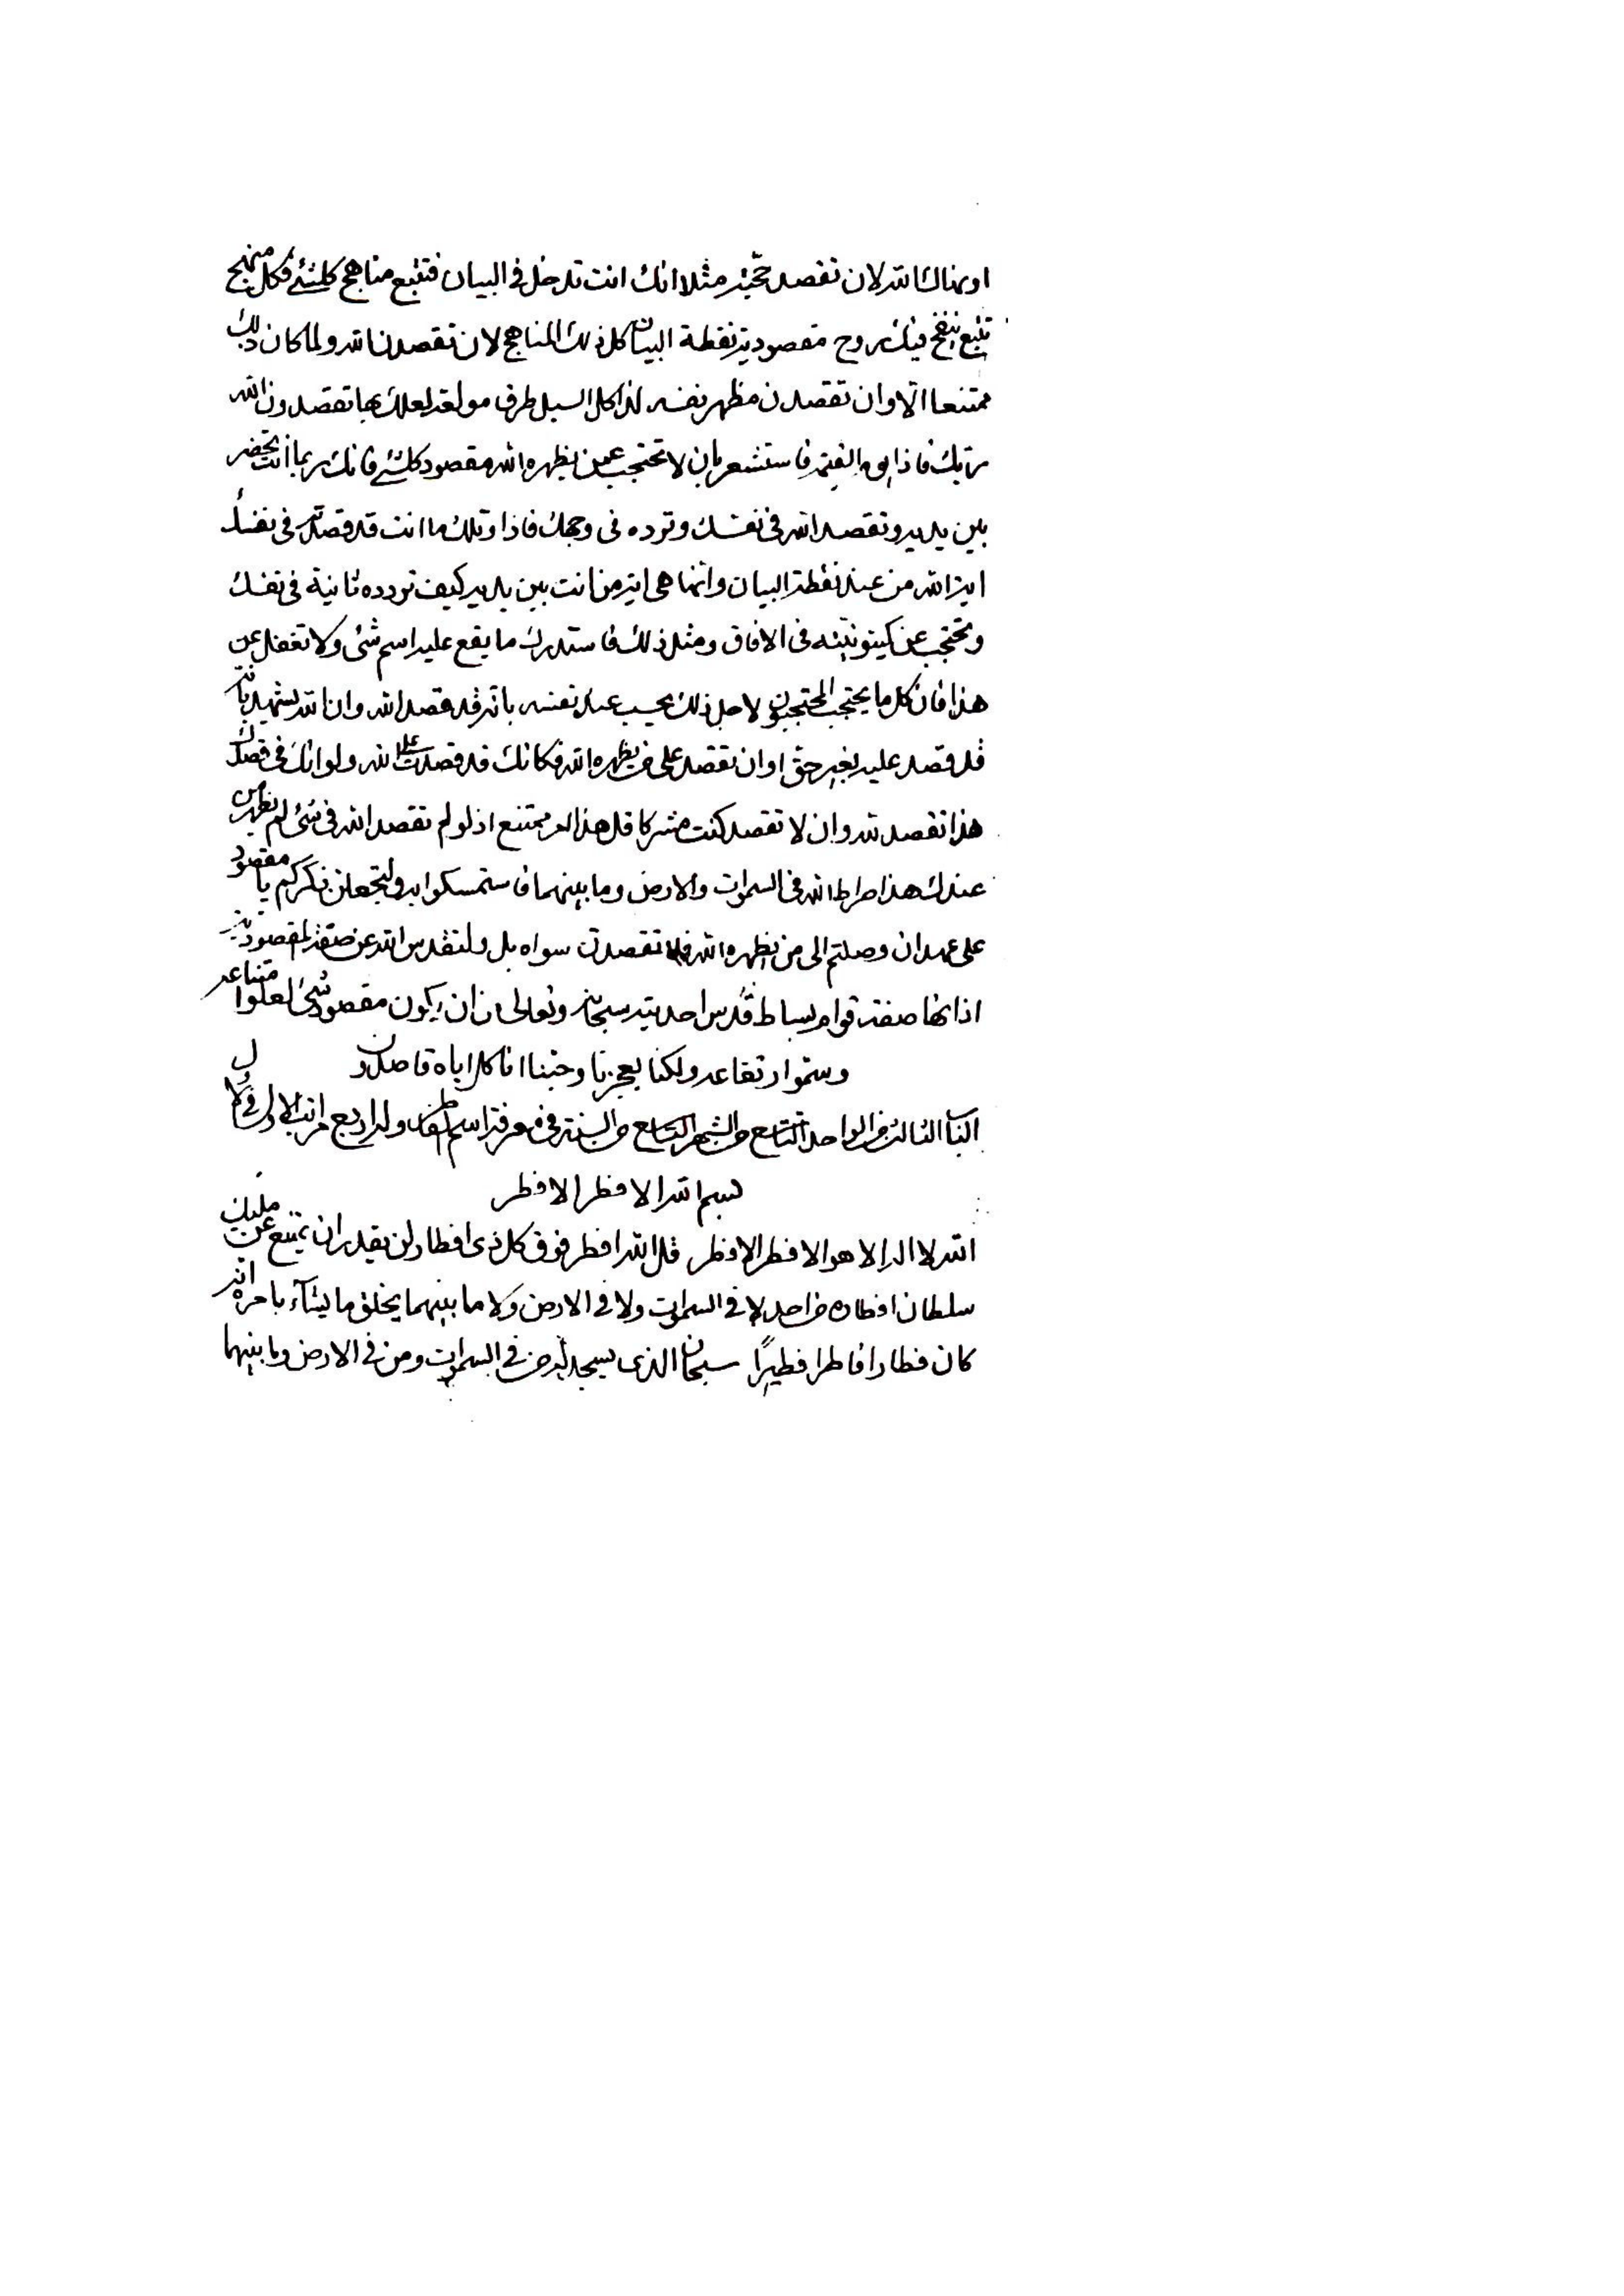 او نهاك الله لان تقصد حجته مثلا انك انت تدخل فى البيان فتتبع مناهج كلشئ فكل منهج
تتبع ينفخ فيك روح مقصودية نقطة البيان كل ذلك المناهج لان تقصدن الله ولما كان ذلك
ممتنعا الا وان تقصدن مظهر نفسه لذا كل السبل طرف لعلك بها تقصدون الله
ربك فاذا فاستشعر بان لا تحتجب عمن يظهره الله مقصود كلشئ فانك ربما انت تحضر
بين يديه وتقصد الله فى نفسك وترده فى وجهك فاذا وتلك ما انت قد قصدته فى نفسك
اية الله من عند نقطة البيان وانما هى اية من انت بين يديه كيف تردده ثانية فى نفسك
وتحتجب عن كينونيته فى الافاق ومثل ذلك فاستدرك ما يقع عليه اسم شئ ولا تغفل عن
هذا فان كل ما يحتجب المحتجبون لاجل ذلك يحسب عند نفسه بانه قد قصد الله وان الله يشهد بانه
قد قصد عليه بغير حق او ان تقصد على من يظهره الله فكانك قد قصدت على الله ولو انك فى قصدك
هذا تقصد لله وان لا تقصد كنت مشركا قل هذا لممتنع اذ لو لم تقصد الله فى شئ لم يظهر
عندك هذا صراط الله فى السموات والارض وما بينهما فاستمسكوا به ولتجعلن ذكركم يا مقصود
على عهد ان وصلتم الى من يظهره الله فلا تقصدن سواه بل ولتقدس الله عن صفة المقصودية
اذ انها صفة قوام بساط قدس احديته سبحانه وتعالى من ان يكون مقصود شئ لعلو امتناعه
وسمو ارتفاعه ولكنا بعجزنا وحبنا انا كل اياه قاصدون
الباب الثالث من الواحد التاسع من الشهر التاسع من السنة فى معرفة اسم الفطار وله اربع مراتب الاول فى الاول
بسم الله الافطر الافطر
الله لا اله الا هو الافطر الافطر قل الله افطر فوق كل ذى افطار لن يقدر ان يمتنع عن مليك
سلطان افطاره من احد لا فى السموات ولا فى الارض ولا ما بينهما يخلق ما يشآء بامره انه
كان فطارا فاطرا فطيرًا سبحان الذى يسجد له من فى السموات ومن فى الارض وما بينهما